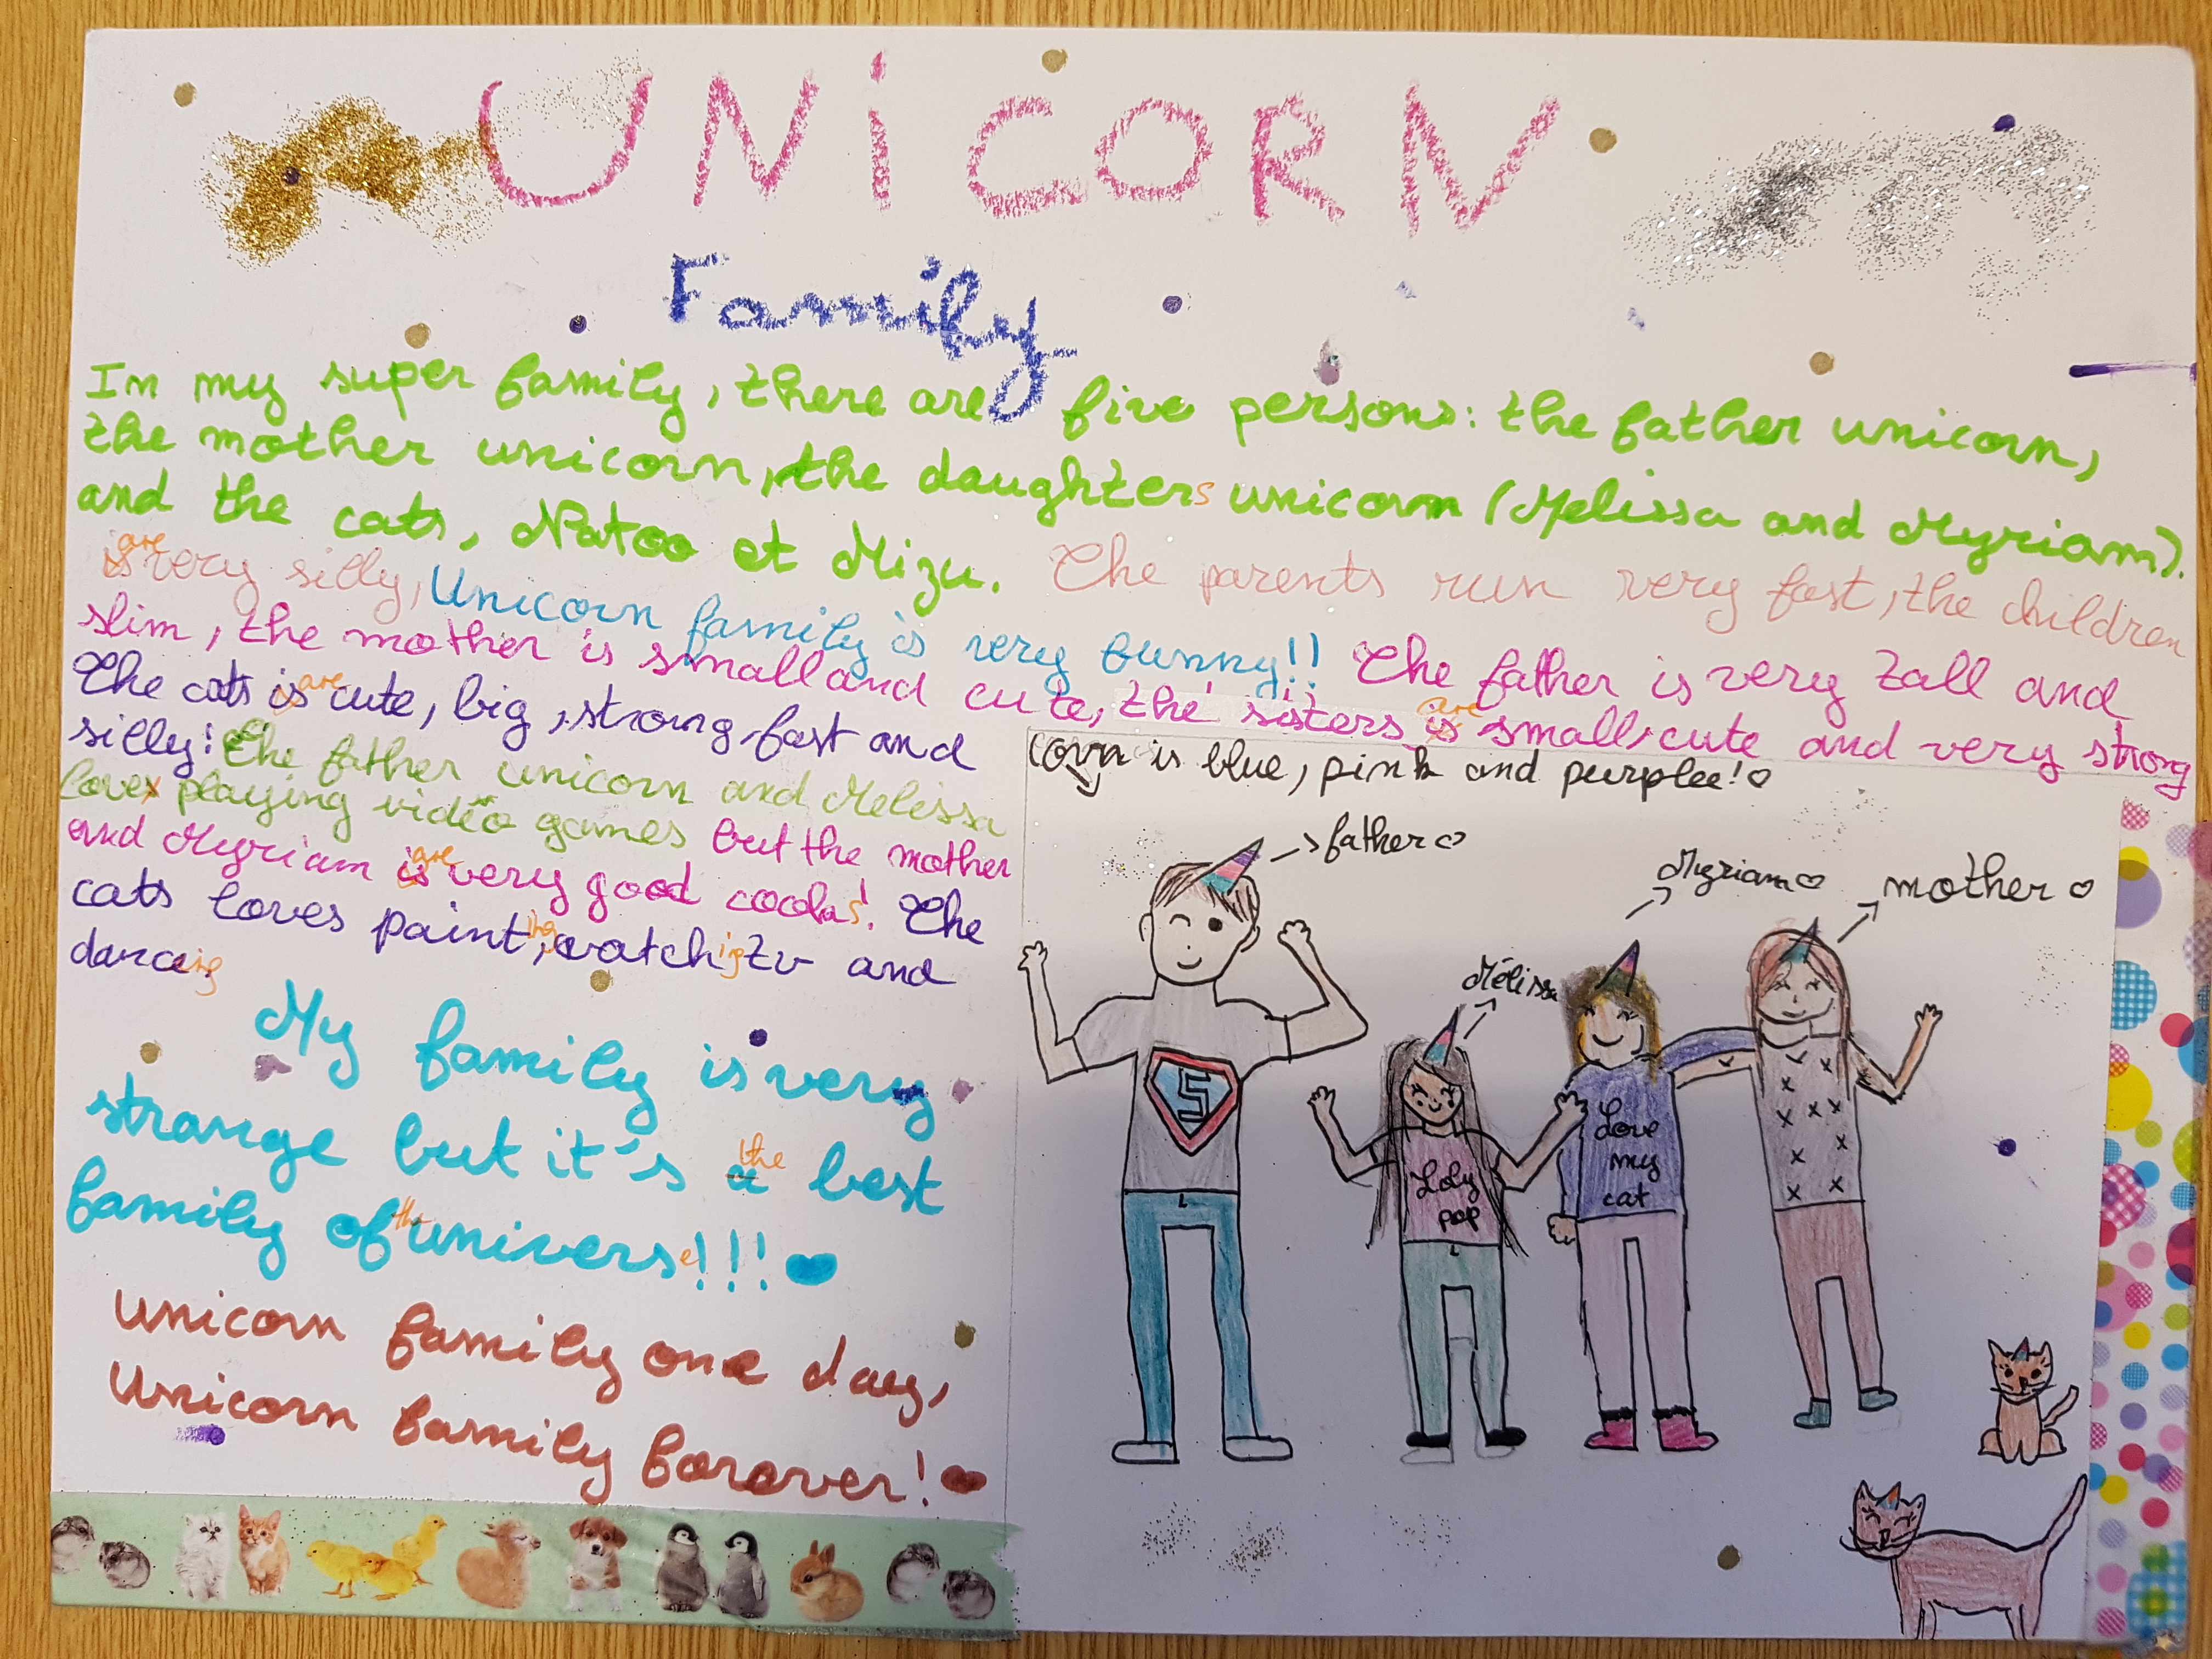 UNICORN
Family
In my super family, there are five persons: the father unicorn,
the mother unicorn, the daughters unicorn (Melissa and Myriam).
and the cats, Natoo et Mizu. The parents run very fast, the children
is are very silly, Unicorn family is very funny!! The father is very tall and
slim, the mother is small and cute, the sisters is are small, cute and very strong
The cats is are cute, big, strong, fast and
silly! The father unicorn and Melissa
loves playing video games but the mother
and Myriam is are very good cooks! The
cats loves painting, watching tv and
dancing
My family is very
strange but it's a the best
family of the universe!!!
Unicorn family one day,
Unicorn family forover!
corn is blue, pink and purplee!
father
Myriam
mother
Mélissa
S
Loly
pop
Love
my
cat